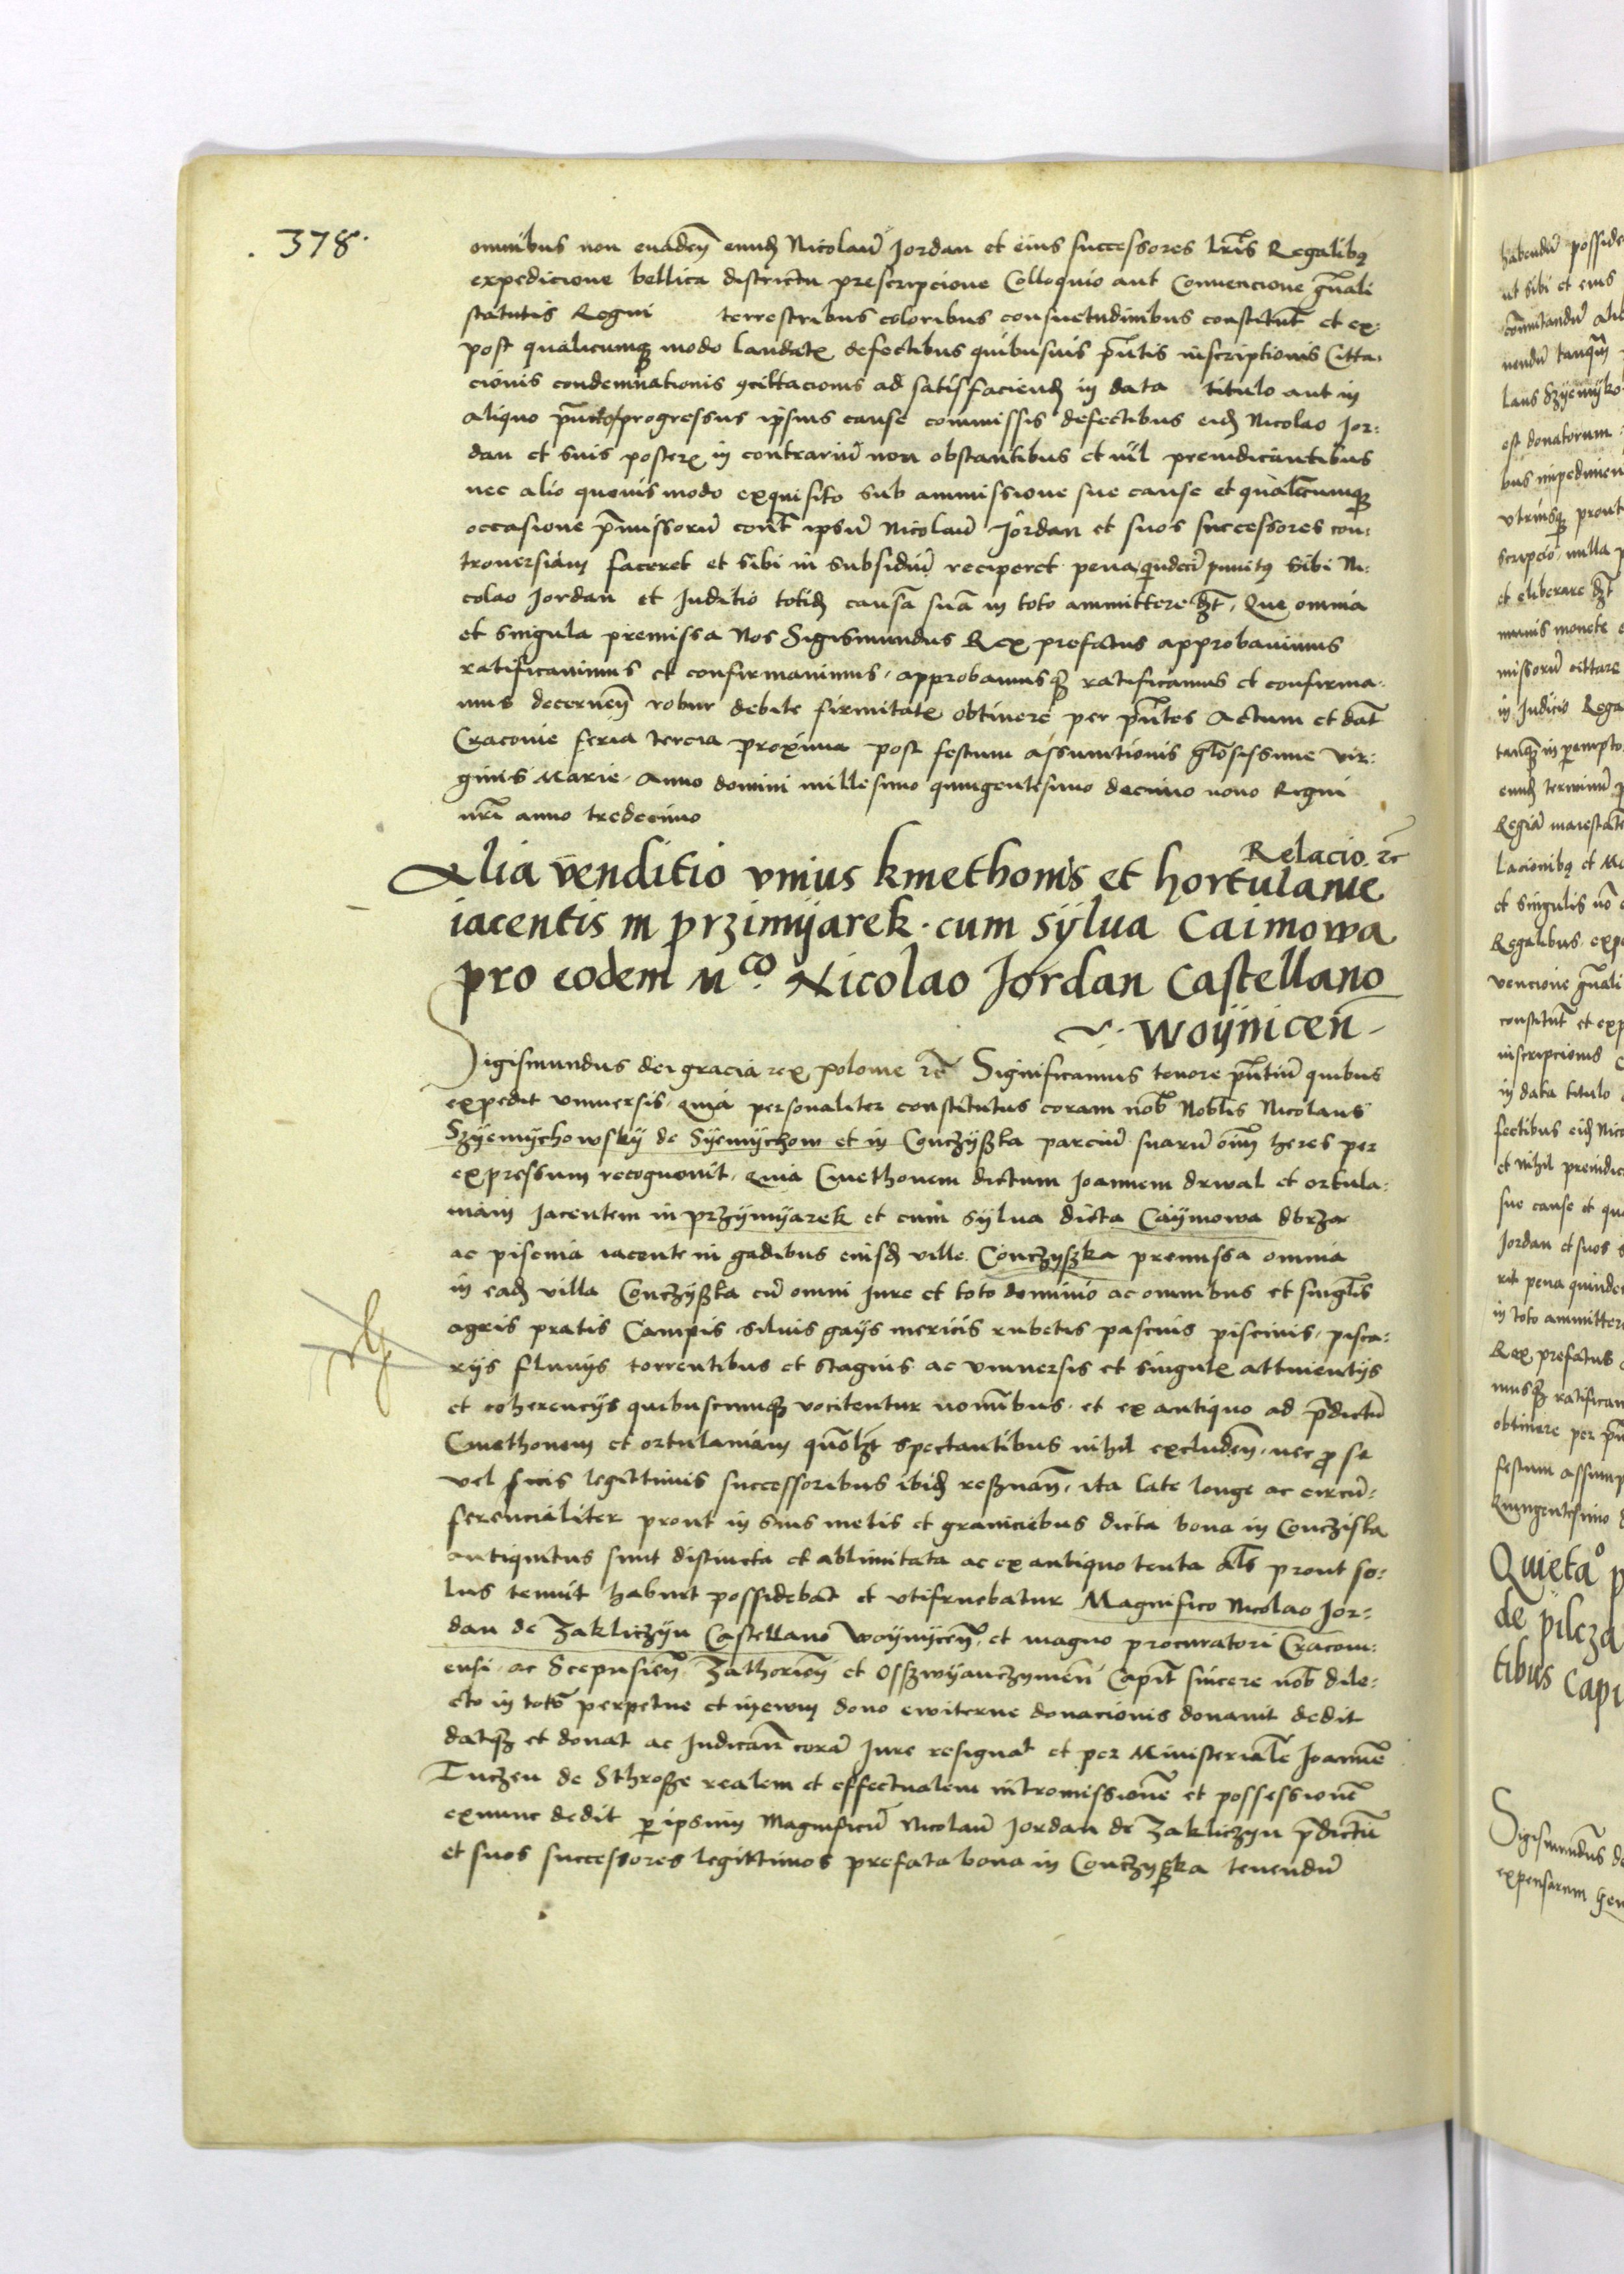 378.
omnibus non evadeñ eund Nicolaū Jordan et eius successores lr̃is Regalibꝫ
expedicione bellica districtu prescripcione Colloquio aut Convencione gñali
statutis Regni terrestribus coloribus consuetudinibus constitut̃ et ex:
post qualicumqꝫ modo laudatꝭ defectibus quibusuis pñtis inscriptionis Citta:
cionis condemnationis ꝯcittacionis ad satisfaciend in data titulo aut in
aliquo puncto progressus ipsius cause commissis defectibus eid Nicolao Jor:
dan et suis posterꝭ in contrariū non obstantibus et nil preiudicantibus
nec alio quouismodo exquisito sub ammissione sue cause et qualicumqꝫ
occasione p̃missorū cont̃ ipsū Nicolaū Jordan et suos successores con:
trouersiam faceret et sibi in subsidiū reciperet pena quindecī punitꝰ sibi Ni:
colao Jordan et Juditio totid causã suã in toto ammittere dꝫt, Que omnia
et singula premissa Nos Sigismundus Rex prefatus approbauimus
ratificauimus et confirmauimus, approbamusqꝫ ratificamus et confirma:
mus decerneñ robur debite firmitatꝭ obtinere per pñtes Actum et dat̃
Cracouie feria tercia proxima post festum assumtionis gl̃osissime vir:
ginis Marie. Anno domini millesimo quingentesimo decimo nono Regni
nr̃i anno tredecimo
Relacio ꝛc
Alia venditio vnius kmethonis et hortulanie
iacentis in przimyarek. cum sylua Caimowa
pro eodem M.co Nicolao Jordan Castellano
Woynicen̄
Sigismundus dei gracia rex polonie ꝛc̃ Significamus tenore pñtiū quibus
expedit vniuersis, quia personaliter constitutus coram nob̃ Nobl̃is Nicolaus
Szyemychowsky de Syemychow et in Conczyßka parciū suarū om̃ heres per
expressum recognouit, quia Cmethonem dictum Joannem drwal et ortula:
niam Jacentem in przymyarek et cum sylua dicta Caymowa dbrza
ac piscina iacente in gadibus eiusd ville Conczyßka premissa omnia
in ead villa Conczyßka cū omni Jure et toto dominio ac omnibus et singl̃is
agris pratis Campis siluis gays mericis rubetis pascuis piscinis, pisca:
rijs fluuijs torrentibus et stagnis ac vniuersis et singulꝭ attinentijs
et coherencijs quibuscumqꝫ vocitentur nominibus. et ex antiquo ad p̃dictū
Cmethonem et ortulaniam quõlꝫt spectantibus nihil excludeñ, nec ꝓ se
vel suis legittimis successoribus ibid reßnañ, ita late longe ac circū:
ferencialiter prout in suis metis et graniciebus dicta bona in Conczißka
antiquitus sunt distincta et ablimitata ac ex antiquo tenta als̃ prout so:
lus tenuit habuit possidebat et vtifruebatur Magnifico Nicolao Jor:
dan de Zakliczyn Castellano Woynyceñ, et magno procuratori Cracoui:
ensi, ac Scepusieñ, Zathorieñ et Osszwyanczymeñ Capit̃ sincere nob̃ dile:
cto in totū perpetue et in ewm dono ewiterne donacionis donauit dedit
datqꝫ et donat ac Judicañ corã Jure resignat et per Ministerialẽ Joannẽ
Tuczen de Sthroße realem et effectualem intromissionẽ et possessionẽ
exnunc dedit ꝑ ipsum Magnificū Nicolaū Jordan de Zakliczyn p̃dictū
et suos successores legittimos prefata bona in Conczyßka tenendū